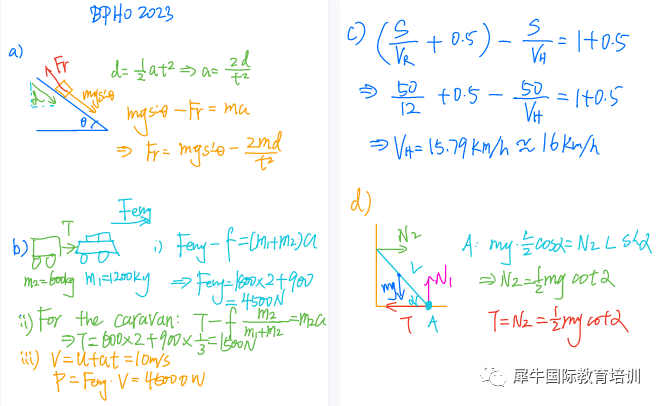 BPHO 2023
a)
Fr
d
mgsinθ
θ
d = 1/2 at² ⇒ a = 2d/t²
mgsinθ - Fr = ma
⇒ Fr = mgsinθ - 2md/t²
b)
T
Feng
m2=600kg m1=1200kg
i) Feng - f = (m1+m2)a
⇒ Feng = 1800×2+900
= 4500N
ii) For the caravan: T - f m2/(m1+m2) = m2a
⇒ T = 600×2+900×1/3 = 1500N
iii) V = u+at = 10m/s
P = Feng·V = 45000W
c) (S/VR + 0.5) - S/VH = 1+0.5
⇒ 50/12 + 0.5 - 50/VH = 1+0.5
⇒ VH = 15.79km/h ≈ 16km/h
d)
N2
L
mg
N1
α
T
A
A: mg·L/2 cosα = N2 L sinα
⇒ N2 = 1/2 mg cotα
T = N2 = 1/2 mg cotα
犀牛国际教育培训